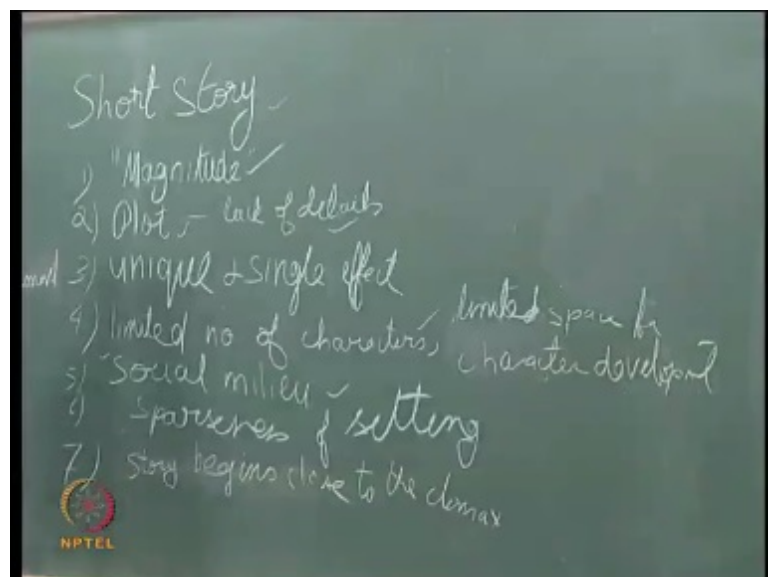 Short Story
1) "Magnitude"
2) Plot, - lack of details
3) unique & single effect
4) limited no of characters, limited space for character developmt
5) Social milieu
6) Sparseness of setting
7) Story begins close to the climax
NPTEL